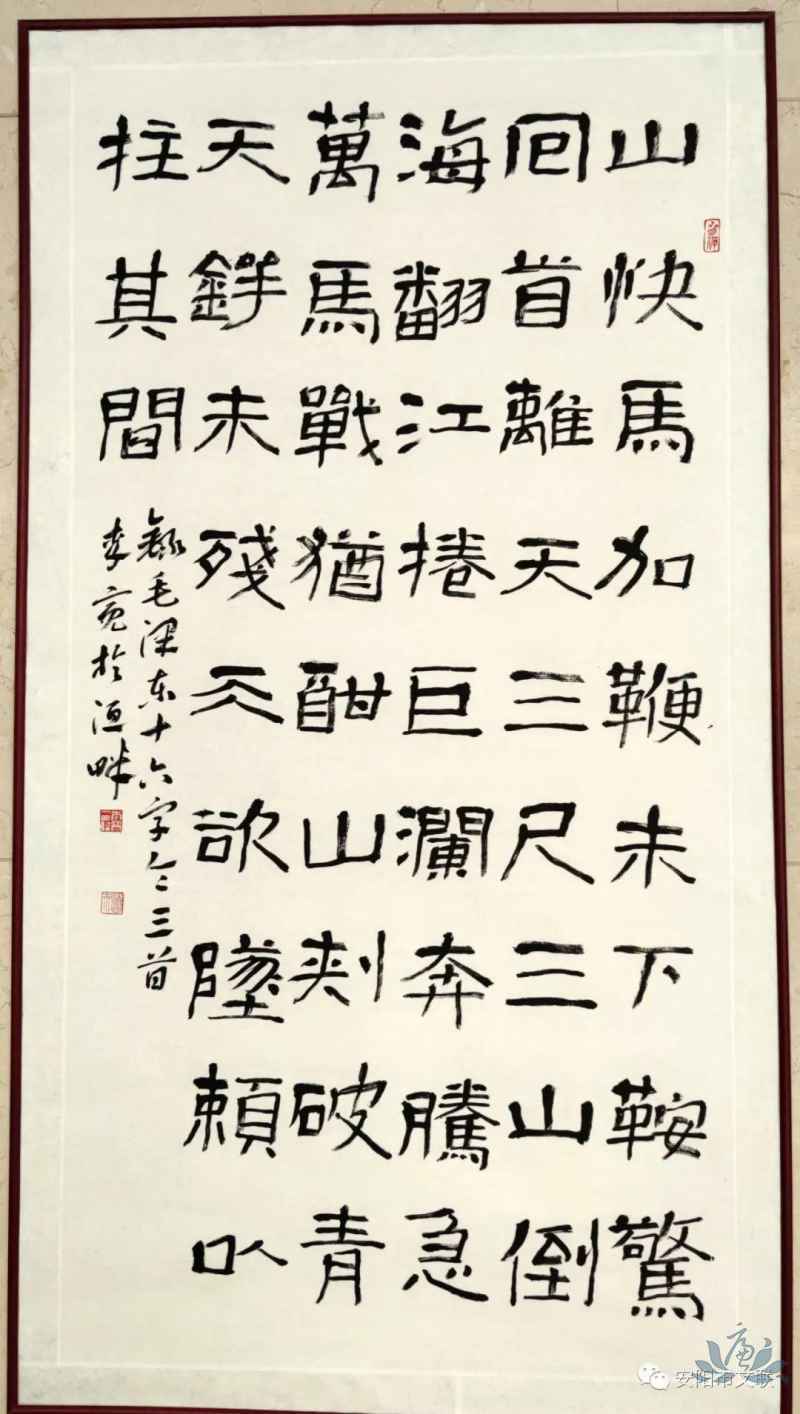 山快馬加鞭未下鞍驚
囘首離天三尺三山倒
海翻江捲巨瀾奔騰急
萬馬戰猶酣山刺破青
天鍔未殘天欲墜賴㕥
拄其間
錄毛泽东十六字令三首
李亮於洹畔
安阳市文联
廉